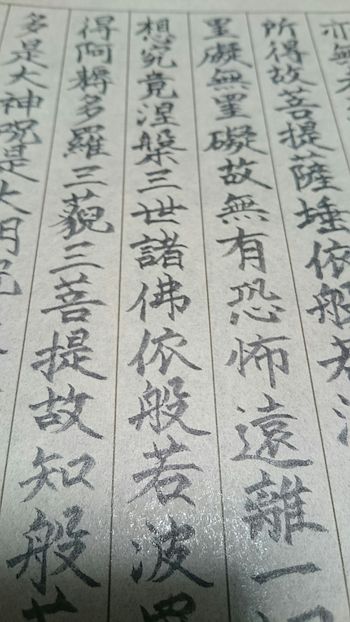 亦無
所得故菩提薩埵依般若
罣礙無罣礙故無有恐怖遠離一切
想究竟涅槃三世諸佛依般若波羅
得阿耨多羅三藐三菩提故知般若
多是大神呪是大明呪